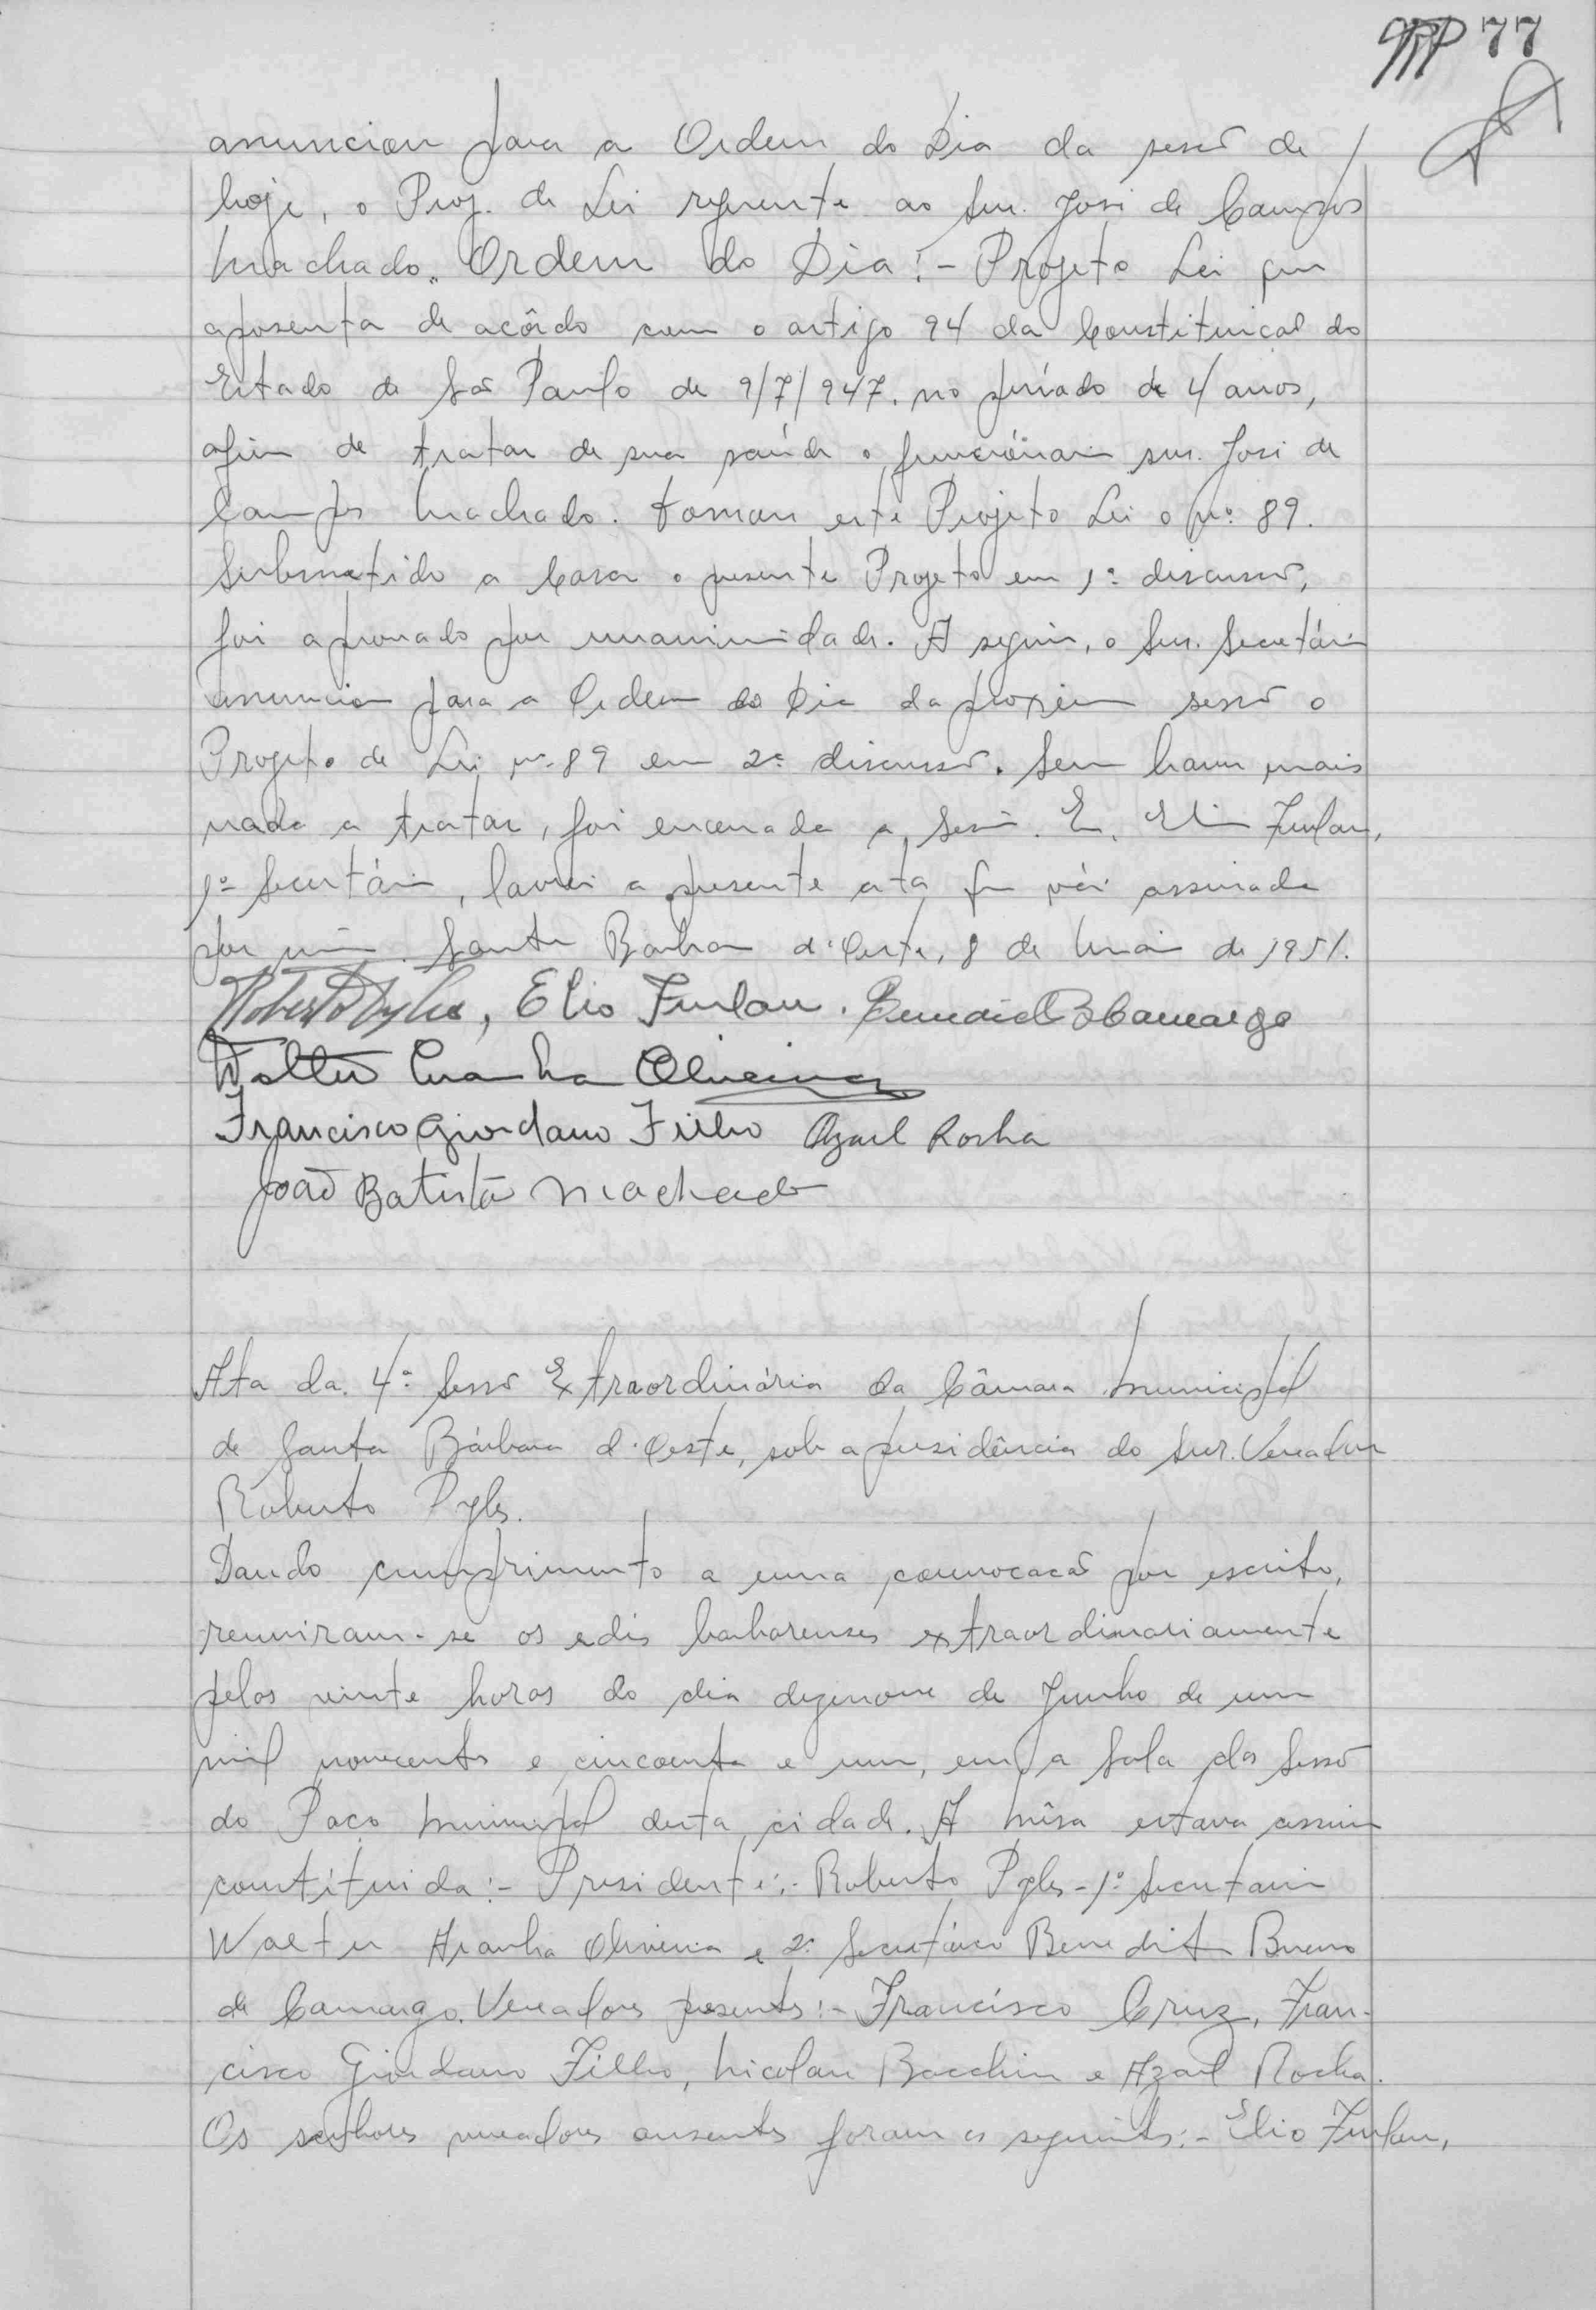 77
anunciou para a Ordem do Dia da sessão de
hoje, o Proj. de Lei referente ao Snr. José de Campos
Machado. Ordem do Dia:- Projeto Lei que
aposenta de acôrdo com o artigo 94 da Constituição do
Estado de São Paulo de 9/7/947. no período de 4 anos,
afim de tratar de sua saúde o funcionário snr. José de
Campos Machado. Tomou este Projeto Lei o nº 89.
Submetido a Casa o presente Projeto em 1ª discussão,
foi aprovado por unanimidade. A seguir, o Snr. Secretário
anunciou para a Ordem do Dia da proxima sessão o
Projeto de Lei nº 89 em 2ª discussão. Sem haver mais
nada a tratar, foi encerrada a sessão. E, Elio Furlan,
1º Secretário, lavrei a presente ata que vai assinada
por mim. Santa Barbara d'Oeste, 8 de Maio de 1951.
Roberto Pyles, Elio Furlan. Benedito B Camargo
Walter Aranha Oliveira
Francisco Giordano Filho Azael Rocha
João Batista Machado
Ata da 4ª Sessão Extraordinária da Câmara Municipal
de Santa Bárbara d'Oeste, sob a presidência do Snr. Vereador
Roberto Pyles.
Dando cumprimento a uma convocação por escrito,
reuniram-se os edis barbarenses extraordinariamente
pelas vinte horas do dia dezenove de Junho de um
mil novecentos e cincoenta e um, em a Sala das Sessão
do Paço Municipal desta cidade. A mêsa estava assim
constituida:- Presidente:- Roberto Pyles - 1º Secretario
Walter Aranha Oliveira e 2º Secretário Benedito Bueno
de Camargo. Vereadores presentes:- Francisco Cruz, Fran-
cisco Giordano Filho, Nicolau Bacchin e Azael Rocha.
Os senhores vereadores ausentes foram os seguintes:- Elio Furlan,